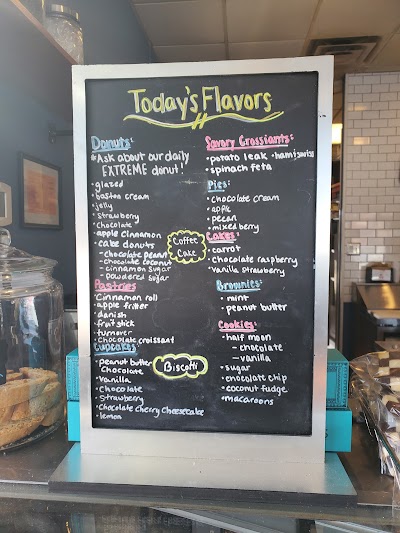 Today's Flavors
Donuts:
*Ask about our daily
EXTREME donut!
• glazed
• boston cream
• jelly
• strawberry
• chocolate
• apple cinnamon
• cake donuts
- chocolate peanut
- chocolate coconut
- cinnamon sugar
- powdered sugar
Pastries
• Cinnamon roll
• apple fritter
• danish
• fruit stick
• turnover
• chocolate croissant
Cupcakes
• peanut butter
chocolate
• vanilla
• chocolate
• strawberry
• chocolate cherry cheesecake
• lemon
Coffee
Cake
Biscotti
Savory Crossiants:
• potato leak • ham/swiss
• spinach feta
Pies:
• chocolate cream
• apple
• pecan
• mixed berry
Cakes:
• carrot
• chocolate raspberry
• vanilla strawberry
Brownies:
• mint
• peanut butter
Cookies:
• half moon
- chocolate
- vanilla
• sugar
• chocolate chip
• coconut fudge
• macaroons